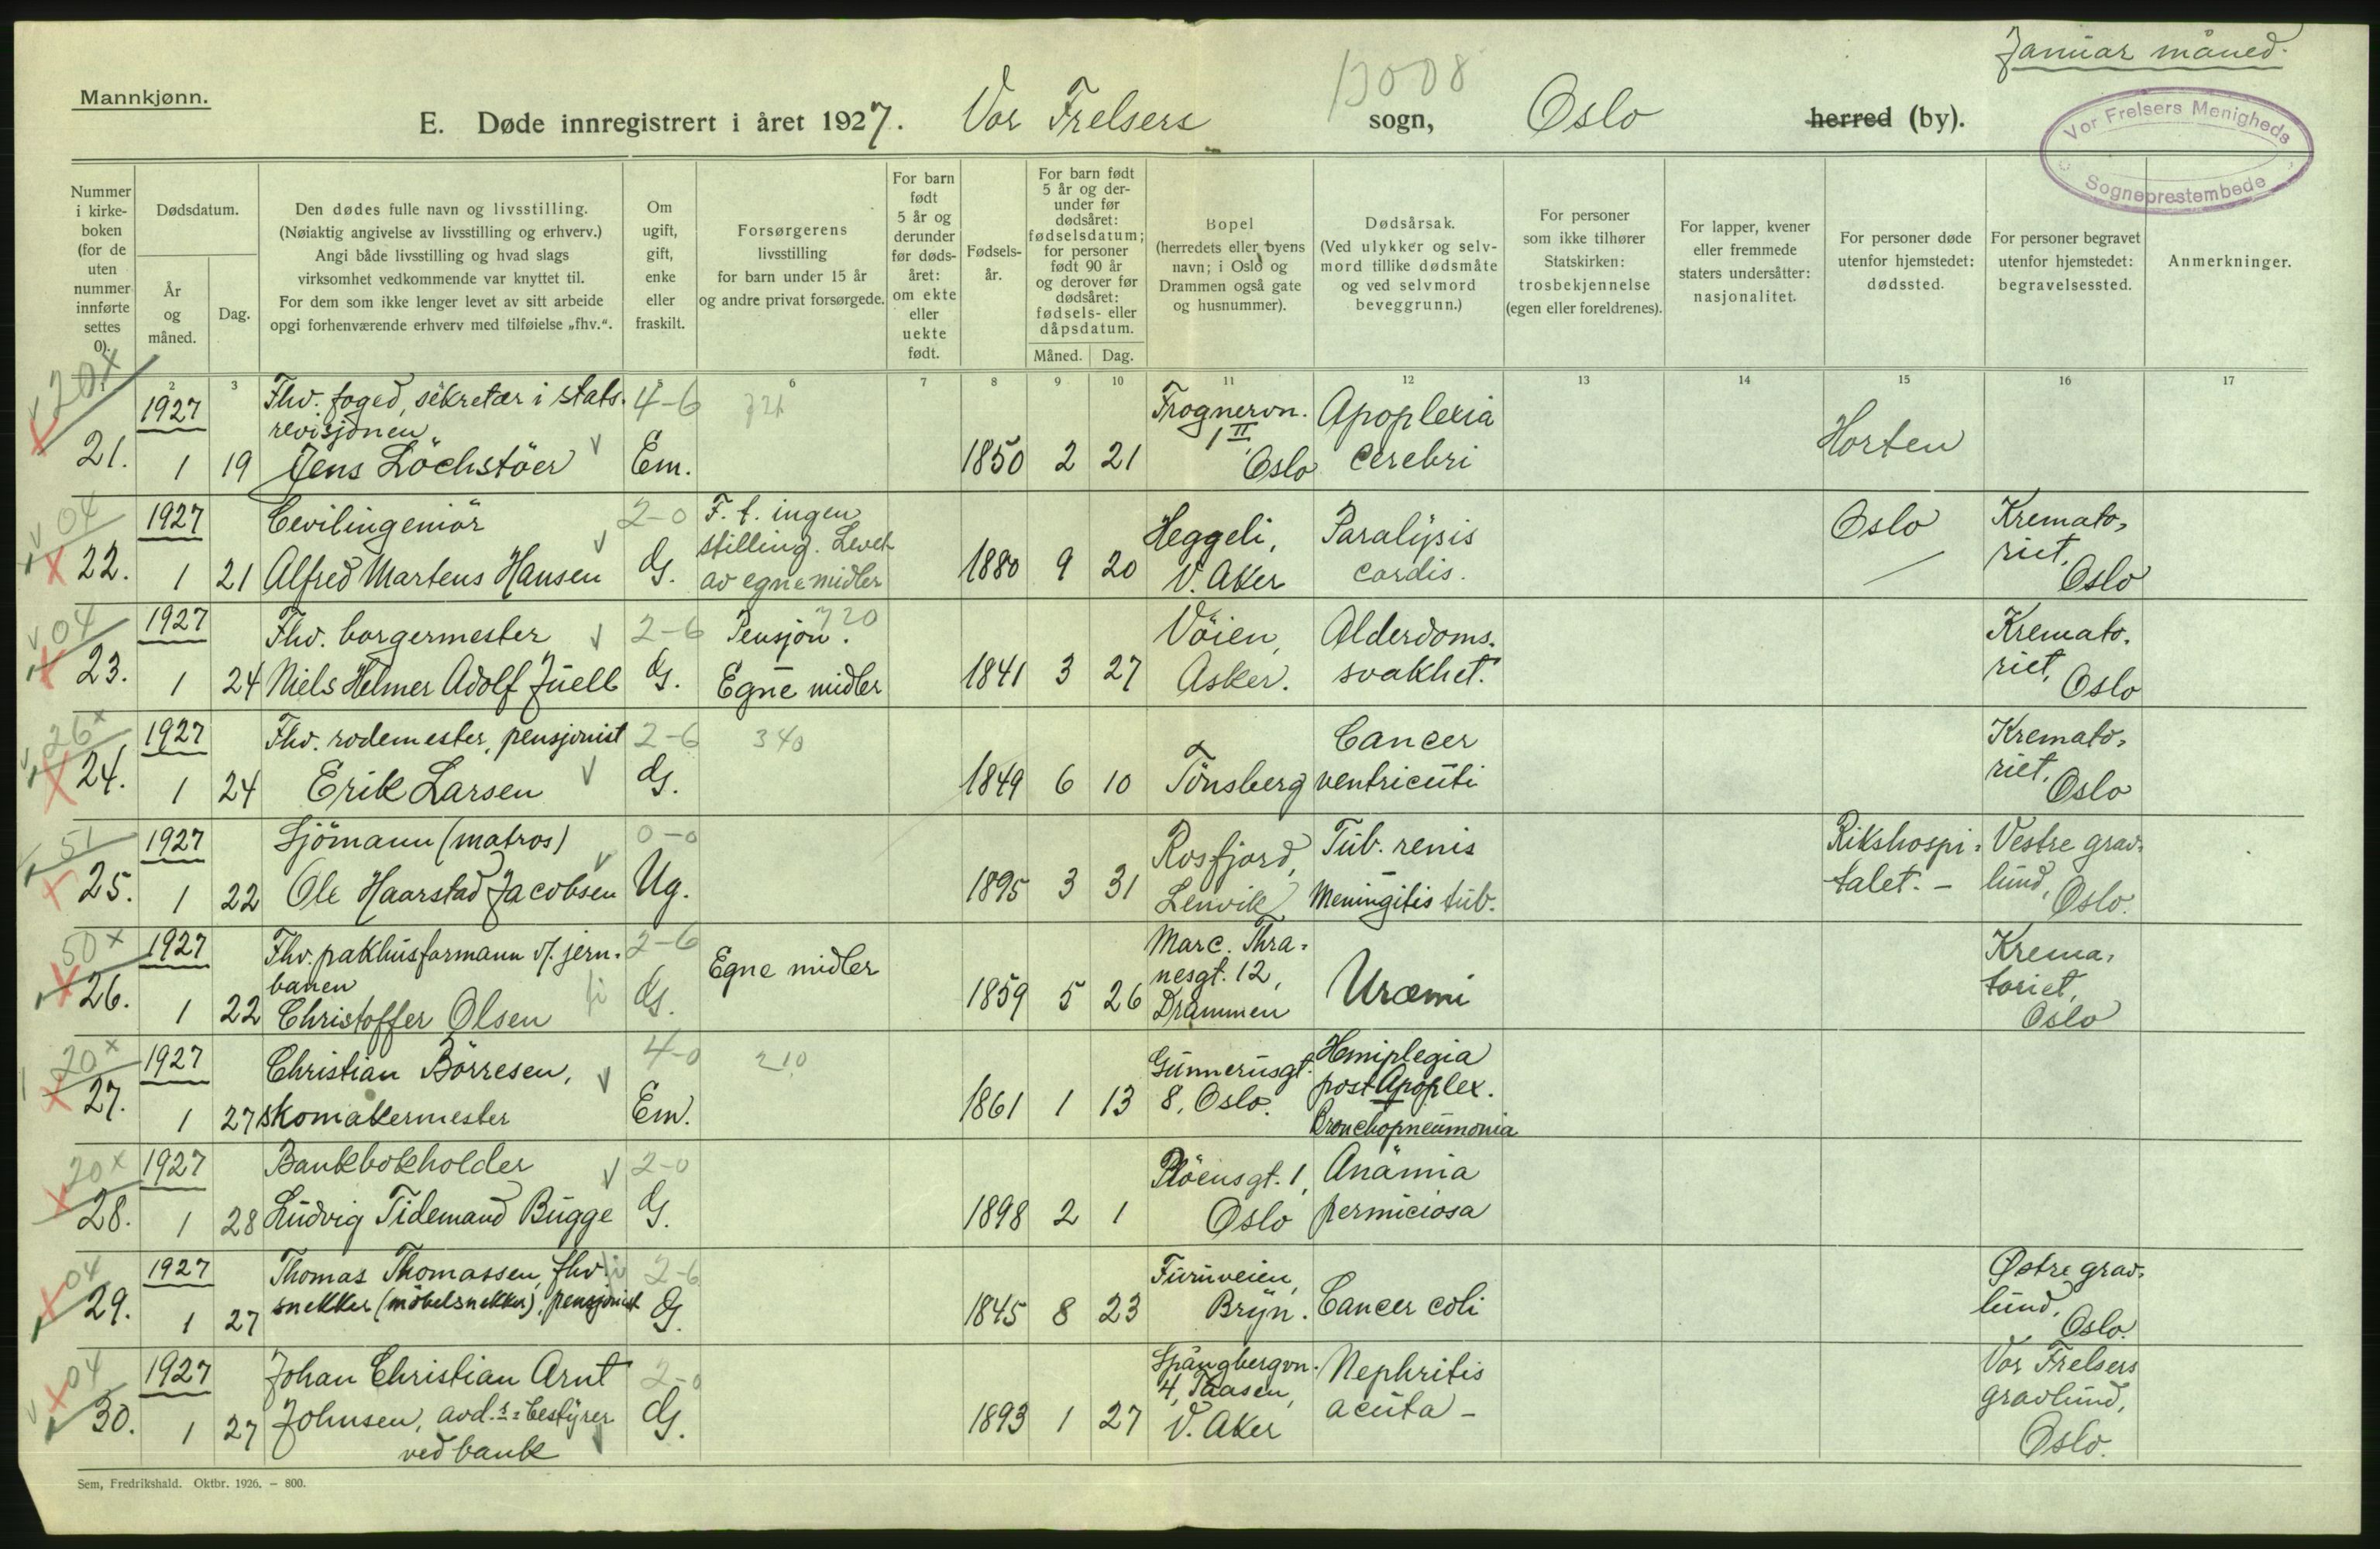 Januar måned.
Mannkjønn.
13008
E. Døde innregistrert i året 1927. Vor Frelsers sogn, Oslo herred (by).
Vor Frelsers Menigheds
Sogneprestembede
Nummer i kirkeboken (for de uten nummer innførte settes 0).
Dødsdatum.
År og måned.
Dag.
Den dødes fulle navn og livsstilling.
(Nøiaktig angivelse av livsstilling og erhverv.)
Angi både livsstilling og hvad slags
virksomhet vedkommende var knyttet til.
For dem som ikke lenger levet av sitt arbeide
opgi forhenværende erhverv med tilføielse „fhv.“.
Om ugift, gift, enke eller fraskilt.
Forsørgerens
livsstilling
for barn under 15 år
og andre privat forsørgede.
For barn født 5 år og derunder før dødsåret: om ekte eller uekte født.
Fødselsår.
For barn født 5 år og derunder før dødsåret: fødselsdatum; for personer født 90 år og derover før dødsåret: fødsels- eller dåpsdatum.
Måned. Dag.
Bopel
(herredets eller byens
navn; i Oslo og
Drammen også gate
og husnummer).
Dødsårsak.
(Ved ulykker og selv-
mord tillike dødsmåte
og ved selvmord
beveggrunn.)
For personer
som ikke tilhører
Statskirken:
trosbekjennelse
(egen eller foreldrenes).
For lapper, kvener
eller fremmede
staters undersåtter:
nasjonalitet.
For personer døde
utenfor hjemstedet:
dødssted.
For personer begravet
utenfor hjemstedet:
begravelsessted.
Anmerkninger.
1 2 3 6 7 8 9 10 11 12 13 14 15 16 17
20x
21. 1927 1 19 Fhv. foged, sekretær i stats-
revisjonen
Jens Löchstöer 4-6 Em. 1850 2 21 Frognervn.
1 II
Oslo Apoplexia
cerebri Horten
04
22. 1927 1 21 Cevilingeniör
Alfred Martens Hansen 2-0 G. F. t. ingen
stilling. Levet
av egne midler 1880 9 20 Heggeli,
V. Aker Paralysis
cordis. Oslo Kremato-
riet,
Oslo
04
23. 1927 1 24 Fhv. borgermester
Niels Helmer Adolf Juell 2-6 G. 720
Pensjon.
Egne midler 1841 3 27 Vöien,
Asker. Alderdoms-
svakhet. Kremato-
riet,
Oslo
26x
24. 1927 1 24 Fhv. rodemester, pensjonist
Erik Larsen 2-6 G. 340 1849 6 10 Tönsberg Cancer
ventriculi Kremato-
riet,
Oslo
51
25. 1927 1 22 Sjömann (matros)
Ole Haarstad Jacobsen 0-0 Ug. 1895 3 31 Rosfjord,
Lenvik Tub. renis
Meningitis tub. Rikshospi-
talet. - Vestre grav-
lund,
Oslo.
50x
26. 1927 1 22 Fhv. pakhusformann v/. jern-
banen
Christoffer Olsen 2-6 G. Egne midler 1859 5 26 Marc. Thra-
nesgt. 12,
Drammen Uræmi Krema-
toriet,
Oslo
20x
27. 1927 1 27 Christian Börresen,
skomakermester 4-0 Em. 210 1861 1 13 Gunnerusgt.
8, Oslo. Hemiplegia
post Apoplex.
Bronchopneumonia
20x
28. 1927 1 28 Bankbokholder
Ludvig Tidemand Bugge 2-0 G. 1898 2 1 Plöensgt. 1,
Oslo Anämia
perniciosa
04
29. 1927 1 27 Thomas Thomassen, fhv.
snekker (möbelsnekker), pensjonist 2-6 G. 1845 8 23 Furuveien,
Bryn. Cancer coli Østre grav-
lund,
Oslo.
04
30. 1927 1 27 Johan Christian Arnt
Johnsen, avd.s-bestyrer
ved bank 2-0 G. 1893 1 27 Spångbergvn.
4, Taasen,
V. Aker Nephritis
acuta - Vor Frelsers
gravlund,
Oslo.
Sem, Fredrikshald. Oktbr. 1926. – 800.